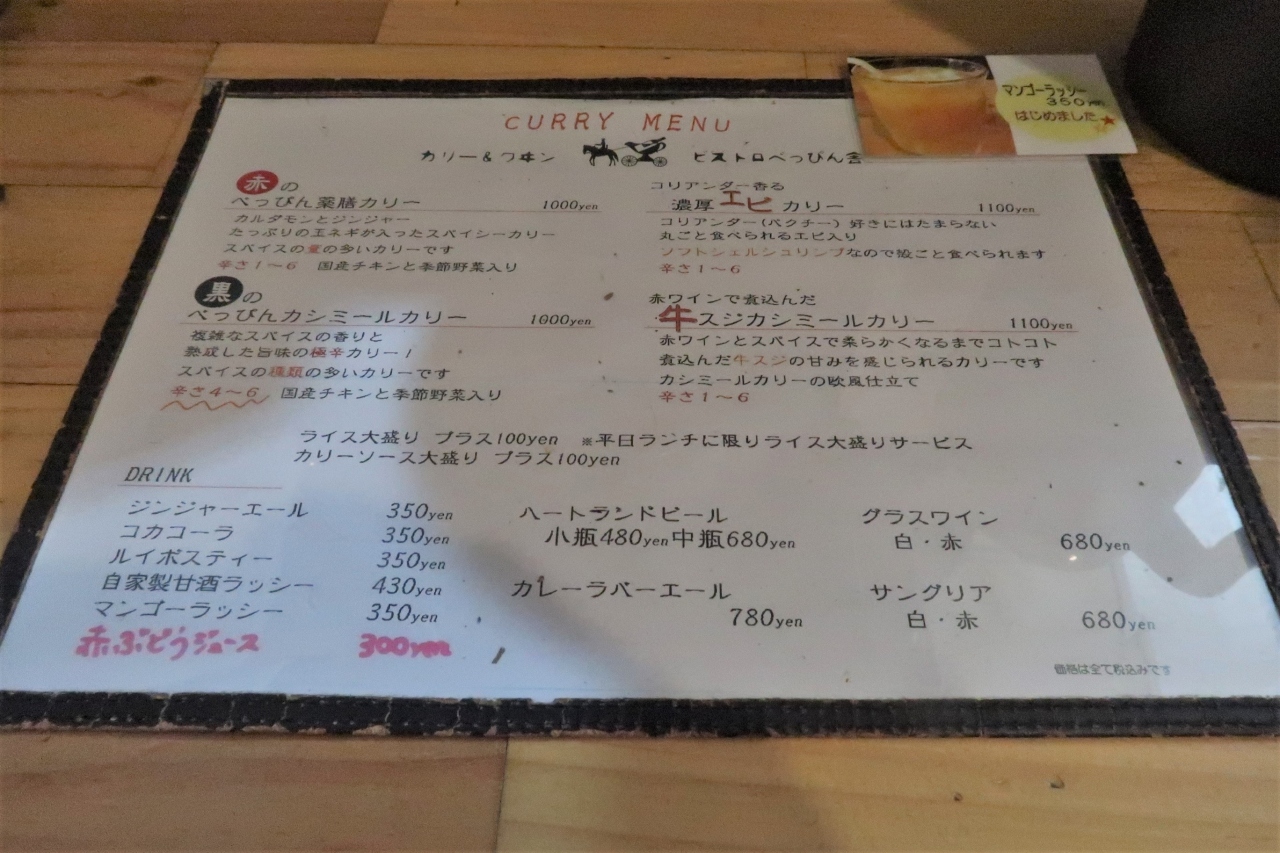 CURRY MENU
カリー&ワヰン ビストロべっぴん舎
マンゴーラッシー
350yen
はじめました★
赤の
べっぴん薬膳カリー 1000yen
カルダモンとジンジャー
たっぷりの玉ネギが入ったスパイシーカリー
スパイスの量の多いカリーです
辛さ1~6 国産チキンと季節野菜入り
黒の
べっぴんカシミールカリー 1000yen
複雑なスパイスの香りと
熟成した旨味の極辛カリー!
スパイスの種類の多いカリーです
辛さ4~6 国産チキンと季節野菜入り
コリアンダー香る
濃厚エビカリー 1100yen
コリアンダー(パクチー)好きにはたまらない
丸ごと食べられるエビ入り
ソフトシェルシュリンプなので殻ごと食べられます
辛さ1~6
赤ワインで煮込んだ
牛スジカシミールカリー 1100yen
赤ワインとスパイスで柔らかくなるまでコトコト
煮込んだ牛スジの甘みを感じられるカリーです
カシミールカリーの欧風仕立て
辛さ1~6
ライス大盛り プラス100yen ※平日ランチに限りライス大盛りサービス
カリーソース大盛り プラス100yen
DRINK
ジンジャーエール 350yen
コカコーラ 350yen
ルイボスティー 350yen
自家製甘酒ラッシー 430yen
マンゴーラッシー 350yen
赤ぶどうジュース 300yen
ハートランドビール
小瓶480yen中瓶680yen
カレーラバーエール
780yen
グラスワイン
白・赤 680yen
サングリア
白・赤 680yen
価格は全て税込みです